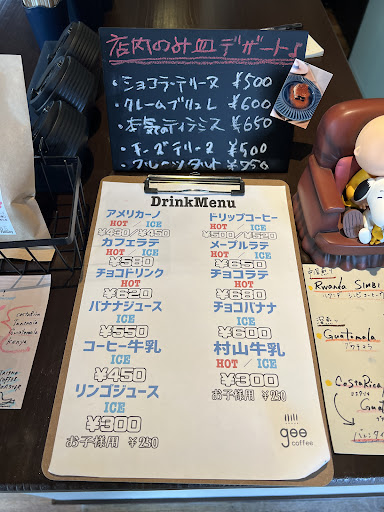 店内のみ皿デザート♪
・ショコラ・テリーヌ ¥500
・クレームブリュレ ¥600
・本気のティラミス ¥650
・チーズテリーヌ ¥500
・フルーツタルト ¥750
DrinkMenu
アメリカーノ
HOT / ICE
¥430/¥450
カフェラテ
HOT / ICE
¥580
チョコドリンク
HOT / ICE
¥620
バナナジュース
ICE
¥550
コーヒー牛乳
ICE
¥450
リンゴジュース
ICE
¥300
お子様用 ¥250
ドリップコーヒー
HOT / ICE
¥500/¥520
メープルラテ
HOT / ICE
¥650
チョコラテ
HOT / ICE
¥680
チョコバナナ
ICE
¥680
村山牛乳
HOT / ICE
¥300
お子様用 ¥250
gee
coffee
Rwanda SIMBI
Guatemala
Costa Rica